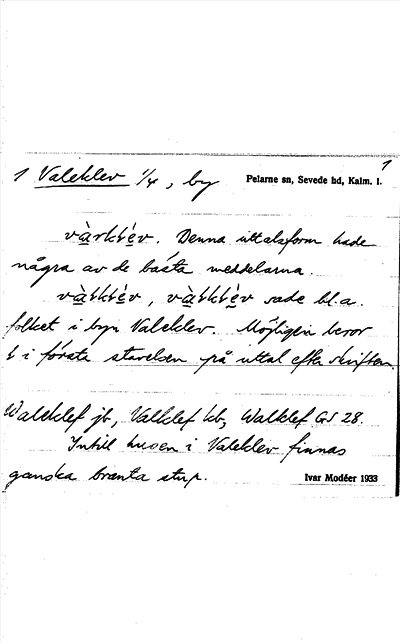 1
1 Valeklev 1/4, by Pelarne sn, Sevede hd, Kalm. l.
Denna uttalsform hade
några av de bästa meddelarna.
sade bl.a.
folket i byn Valeklev. Möjligen beror
i första stavelsen på uttal efter skriften.
Waleklef jb, Valklef kb, Walklef GS 28.
Intill husen i Valeklev finnas
ganska branta stup.
Ivar Modéer 1933